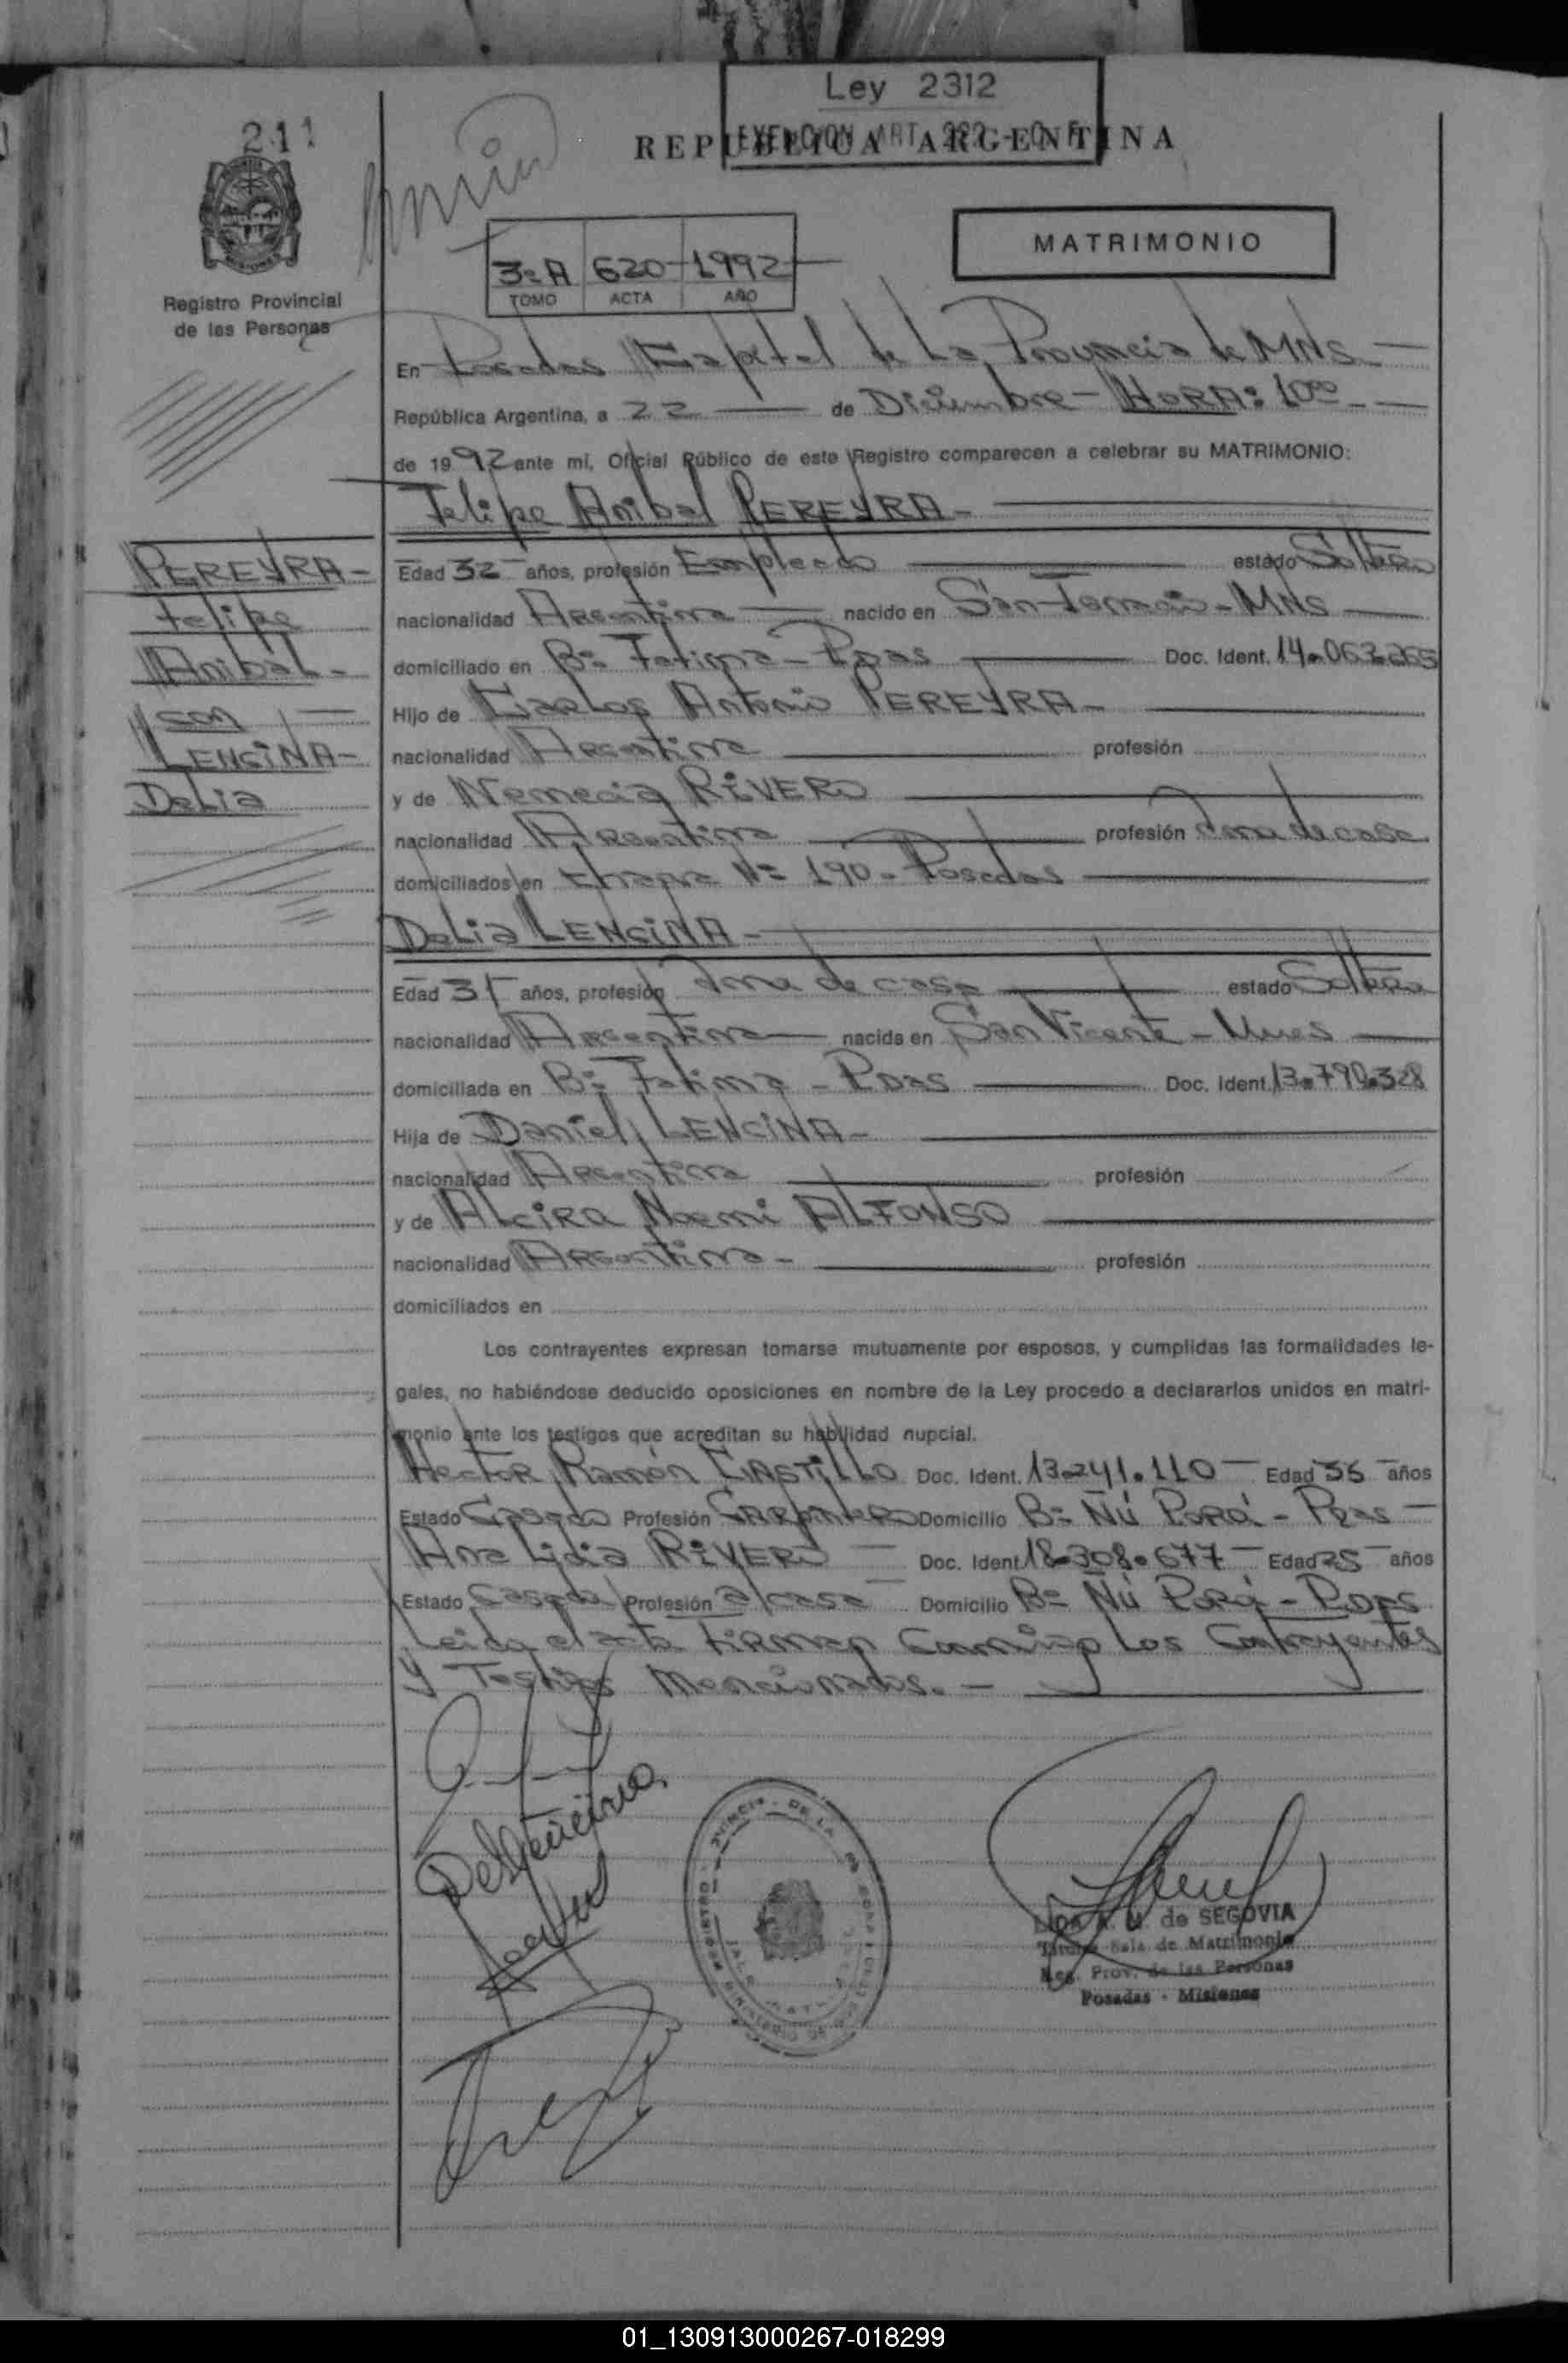 Ley 2312
EXENCION ART. 282 - C. F.
REPUBLICA ARGENTINA
211
MATRIMONIO
3º A 620 - 1992
TOMO ACTA AÑO
Registro Provincial
de las Personas
En Posadas Capital de La Provincia de MNS.
República Argentina, a 22 de Diciembre - HORA: 10⁰⁰
de 1992 ante mí, Oficial Público de este Registro comparecen a celebrar su MATRIMONIO:
Felipe Anibal PEREYRA -
PEREYRA -
Felipe
Anibal -
con
LENCINA -
Delia
Edad 32 años, profesión Empleado estado Soltero
nacionalidad Argentina nacido en San Ignacio - MNS
domiciliado en Bº Fatima - Pdas Doc. Ident. 14.063.265
Hijo de Carlos Antonio PEREYRA -
nacionalidad Argentina profesión
y de Nemecia RIVERO
nacionalidad Argentina profesión Ama de casa
domiciliados en Nº 190 - Posadas
Delia LENCINA -
Edad 31 años, profesión Ama de casa estado Soltera
nacionalidad Argentina nacida en San Vicente - Mnes
domiciliada en Bº Fatima - Pdas Doc. Ident. 13.790.328
Hija de Daniel LENCINA -
nacionalidad Argentina profesión
y de Alcira Noemi ALFONSO
nacionalidad Argentina - profesión
domiciliados en
Los contrayentes expresan tomarse mutuamente por esposos, y cumplidas las formalidades le-
gales, no habiéndose deducido oposiciones en nombre de la Ley procedo a declararlos unidos en matri-
monio ante los testigos que acreditan su habilidad nupcial.
Hector Ramón CASTILLO Doc. Ident. 13.241.110 Edad 36 años
Estado Casado Profesión Carpintero Domicilio Bº Ñú Porá - Pdas
Ana Lidia RIVERO Doc. Ident. 18.308.677 Edad 25 años
Estado Casada Profesión a/casa Domicilio Bº Ñú Porá - Pdas
Leida el acta Firman Conmigo Los Contrayentes
y Testigos Mencionados. -
de SEGOVIA
Sala de Matrimonio
Reg. Prov. de las Personas
Posadas - Misiones
01_130913000267-018299